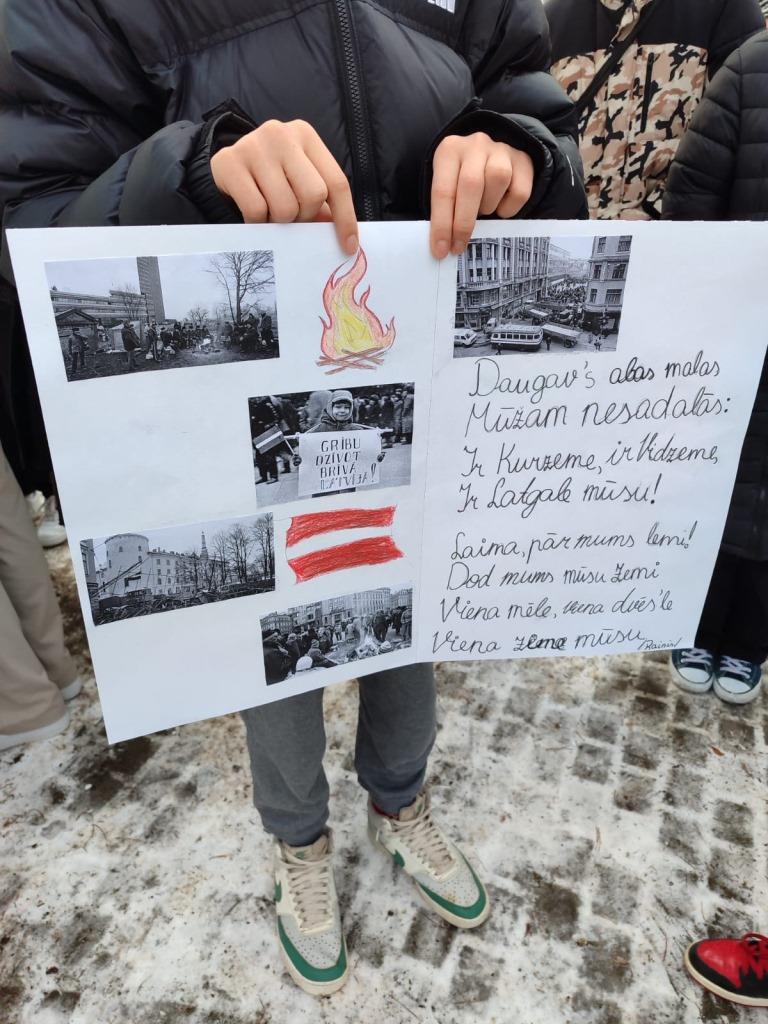 GRIBU
DZĪVOT
BRĪVĀ
LATVIJĀ!
Daugav's abas malas
Mūžam nesadalās:
Ir Kurzeme, ir Vidzeme,
Ir Latgale mūsu!
Laima, pār mums lemi!
Dod mums mūsu zemi
Viena mēle, viena dvēs'le
Viena zeme mūsu
/Rainis/